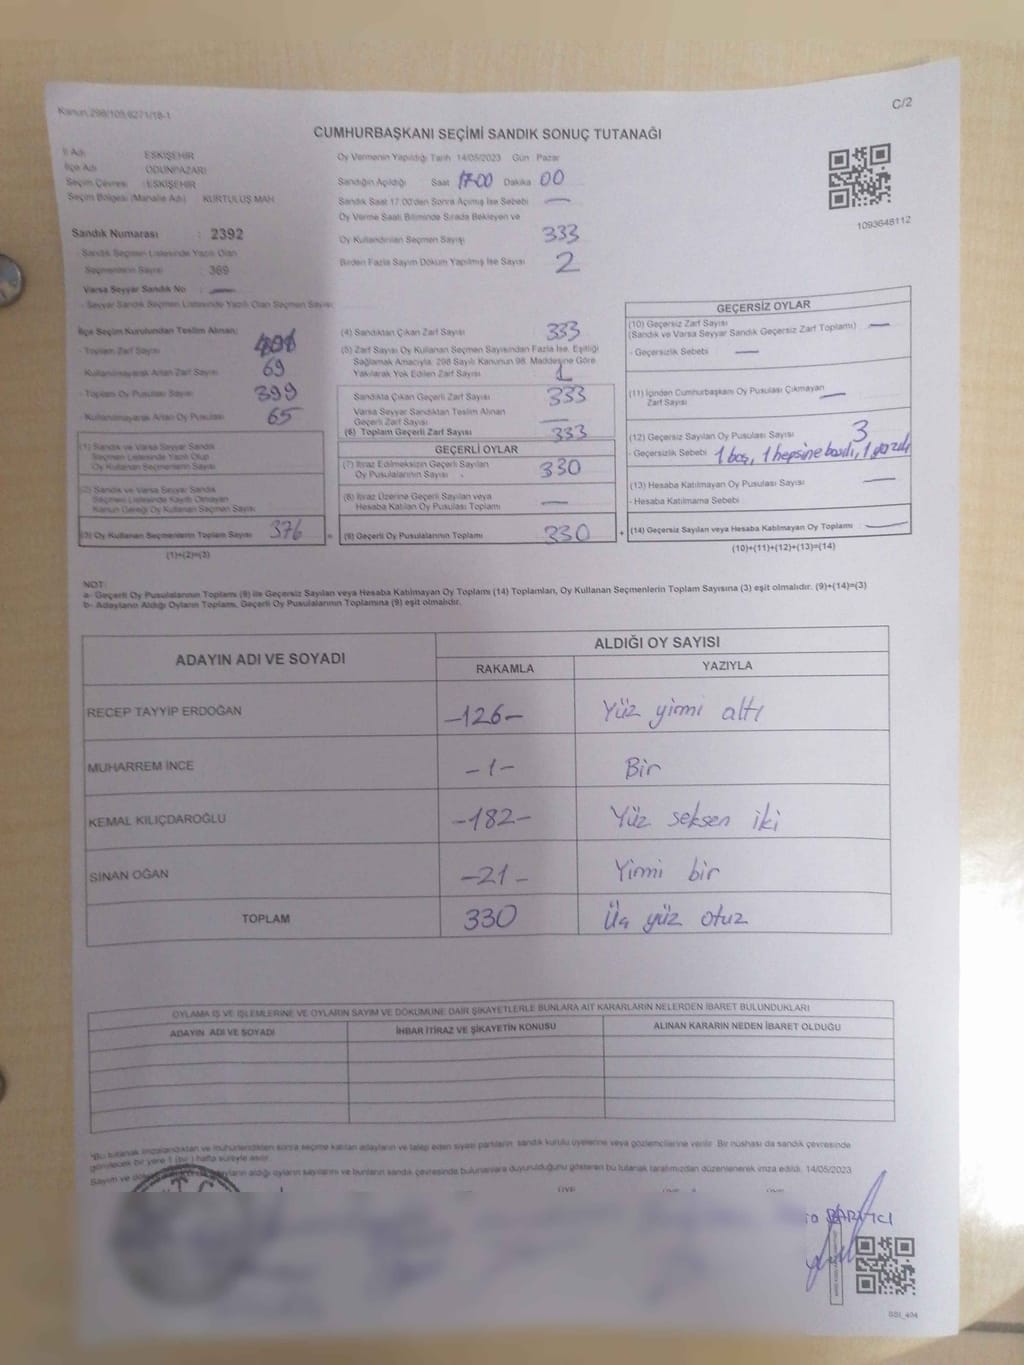 Kanun:298/105,6271/18-1
C/2
CUMHURBAŞKANI SEÇİMİ SANDIK SONUÇ TUTANAĞI
İl Adı : ESKİŞEHİR
İlçe Adı : ODUNPAZARI
Seçim Çevresi : ESKİŞEHİR
Seçim Bölgesi (Mahalle Adı) : KURTULUŞ MAH
Sandık Numarası : 2392
Sandık Seçmen Listesinde Yazılı Olan
Seçmenlerin Sayısı : 389
Varsa Seyyar Sandık No : —
- Seyyar Sandık Seçmen Listesinde Yazılı Olan Seçmen Sayısı
Oy Vermenin Yapıldığı Tarih 14/05/2023 Gün Pazar
Sandığın Açıldığı Saat 17:00 Dakika 00
Sandık Saat 17:00'den Sonra Açımış İse Sebebi —
Oy Verme Saati Bitiminde Sırada Bekleyen ve
Oy Kullandırılan Seçmen Sayışı 333
Birden Fazla Sayım Döküm Yapılmış İse Sayısı 2
1093648112
İlçe Seçim Kurulundan Teslim Alınan:
- Toplam Zarf Sayısı
- Kullanılmayarak Artan Zarf Sayısı 69
- Toplam Oy Pusulası Sayısı 399
- Kullanılmayarak Artan Oy Pusulası 65
(1) Sandık ve Varsa Seyyar Sandık
Seçmen Listesinde Yazılı Olup
Oy Kullanan Seçmenlerin Sayısı
(2) Sandık ve Varsa Seyyar Sandık
Seçmen Listesinde Kayıtlı Olmayan
Kanun Gereği Oy Kullanan Seçmen Sayısı
(3) Oy Kullanan Seçmenlerin Toplam Sayısı 376
(1)+(2)=(3)
(4) Sandıktan Çıkan Zarf Sayısı 333
(5) Zarf Sayısı Oy Kullanan Seçmen Sayısından Fazla İse, Eşitliği
Sağlamak Amacıyla, 298 Sayılı Kanunun 98. Maddesine Göre
Yakılarak Yok Edilen Zarf Sayısı 1
Sandıkta Çıkan Geçerli Zarf Sayısı 333
Varsa Seyyar Sandıktan Teslim Alınan
Geçerli Zarf Sayısı —
(6) Toplam Geçerli Zarf Sayısı 333
GEÇERLİ OYLAR
(7) İtiraz Edilmeksizin Geçerli Sayılan
Oy Pusulalarının Sayısı 330
(8) İtiraz Üzerine Geçerli Sayılan veya
Hesaba Katılan Oy Pusulası Toplamı —
= (9) Geçerli Oy Pusulalarının Toplamı 330 +
GEÇERSİZ OYLAR
(10) Geçersiz Zarf Sayısı
(Sandık ve Varsa Seyyar Sandık Geçersiz Zarf Toplamı) —
- Geçersizlik Sebebi —
(11) İçinden Cumhurbaşkanı Oy Pusulası Çıkmayan
Zarf Sayısı —
(12) Geçersiz Sayılan Oy Pusulası Sayısı 3
- Geçersizlik Sebebi 1 boş, 1 hepsine basılı, 1 yazılı
(13) Hesaba Katılmayan Oy Pusulası Sayısı —
- Hesaba Katılmama Sebebi
(14) Geçersiz Sayılan veya Hesaba Katılmayan Oy Toplamı —
(10)+(11)+(12)+(13)=(14)
NOT:
a- Geçerli Oy Pusulalarının Toplamı (9) ile Geçersiz Sayılan veya Hesaba Katılmayan Oy Toplamı (14) Toplamları, Oy Kullanan Seçmenlerin Toplam Sayısına (3) eşit olmalıdır. (9)+(14)=(3)
b- Adayların Aldığı Oyların Toplamı, Geçerli Oy Pusulalarının Toplamına (9) eşit olmalıdır.
ADAYIN ADI VE SOYADI
ALDIĞI OY SAYISI
RAKAMLA YAZIYLA
RECEP TAYYİP ERDOĞAN -126- Yüz yirmi altı
MUHARREM İNCE -1- Bir
KEMAL KILIÇDAROĞLU -182- Yüz seksen iki
SİNAN OĞAN -21- Yirmi bir
TOPLAM 330 Üç yüz otuz
OYLAMA İŞ VE İŞLEMLERİNE VE OYLARIN SAYIM VE DÖKÜMÜNE DAİR ŞİKAYETLERLE BUNLARA AİT KARARLARIN NELERDEN İBARET BULUNDUKLARI
ADAYIN ADI VE SOYADI İHBAR İTİRAZ VE ŞİKAYETİN KONUSU ALINAN KARARIN NEDEN İBARET OLDUĞU
*Bu tutanak imzalandıktan ve mühürlendikten sonra seçime katılan adayların ve talep eden siyasi partilerin sandık kurulu üyelerine veya gözlemcilerine verilir. Bir nüshası da sandık çevresinde
görülecek bir yere 1 (bir) hafta süreyle asılır.
Sayım ve adayların aldığı oyların sayılarını ve bunların sandık çevresinde bulunanlara duyurulduğunu gösteren bu tutanak tarafımızdan düzenlenerek imza edildi. 14/05/2023
T.C.
ÜYE ÜYE